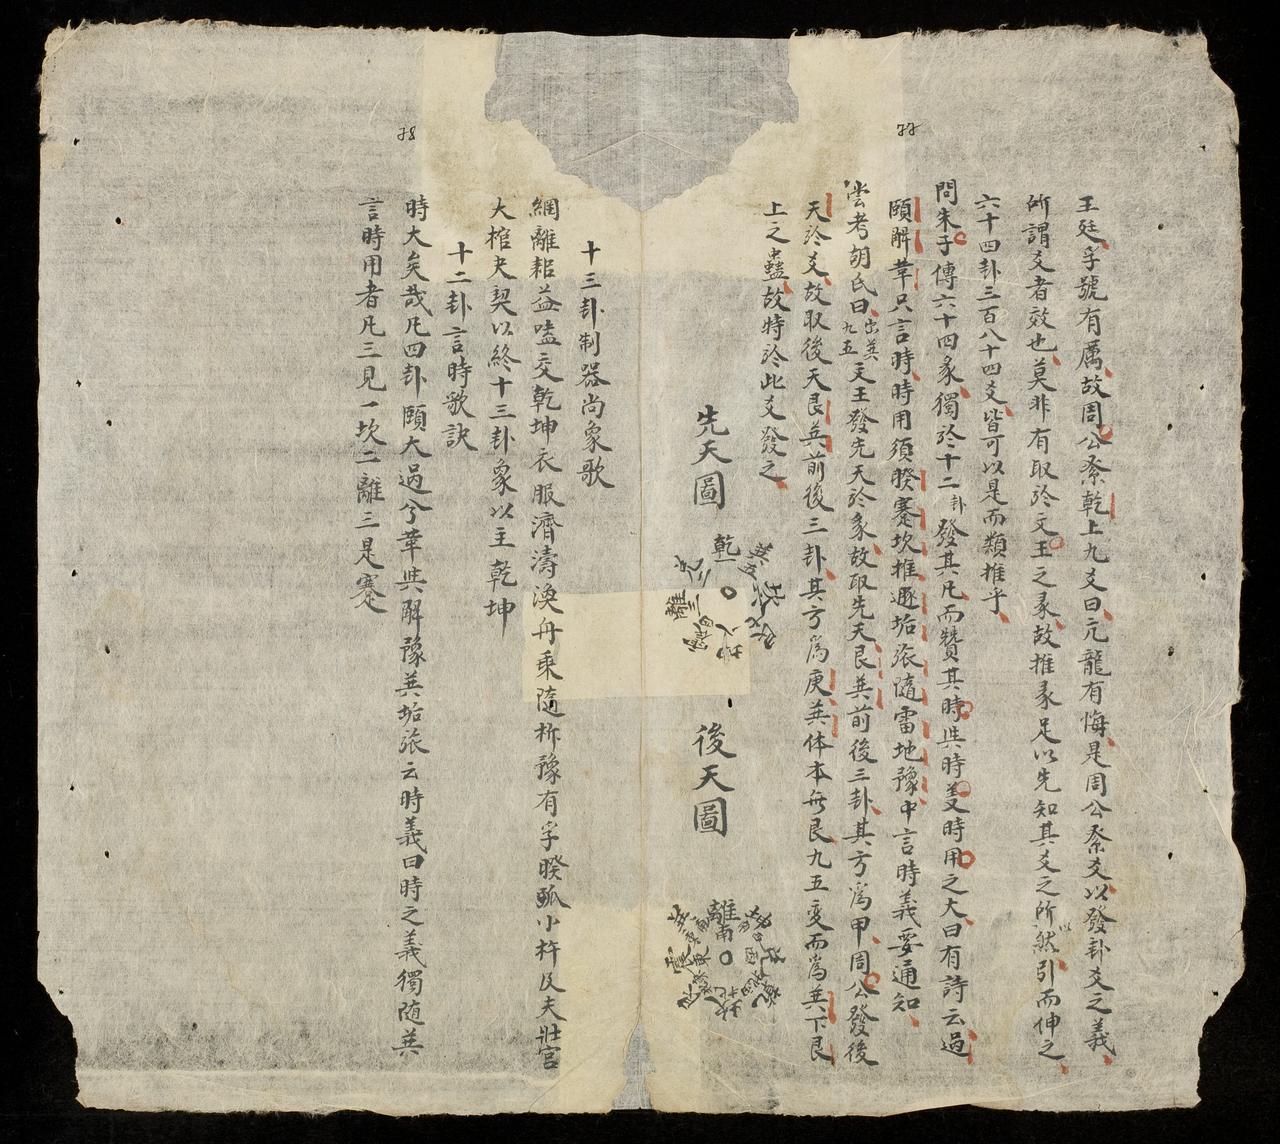 77
王廷孚號有厲故周公於乾上九爻曰亢龍有悔是周公繫爻以發卦爻之義
所謂爻者效也莫非有取於文王之彖故推彖足以先知其爻之所以然引而伸之
六十四卦三百八十四爻皆可以是而類推乎
問朱子傳六十四彖獨於十二卦發其凡而贊其時與時義時用之大曰有詩云過
頤解革只言時時用須睽蹇坎推遯姤旅隨雷地豫中言時義要通知
嘗考胡氏曰出巽九五文王發先天於彖故取先天艮巽前後三卦其方為甲周公發後
天於爻故取後天艮巽前後三卦其方為庚巽体本無艮九五變而為巽下艮
上之蠱故特於此爻發之
先天圖
乾一
離三
坤八
巽五
後天圖
離南
震東
78
十三卦制器尚象歌
網離耜益嗑交乾坤衣服濟濤渙舟乘隨柝豫有孚睽弧小杵及夫壯宮
大棺夬契以終十三卦象以主乾坤
十二卦言時歌訣
時大矣哉凡四卦頤大過兮革與解豫巽姤旅云時義曰時之義獨随巽
言時用者凡三見一坎二離三是蹇